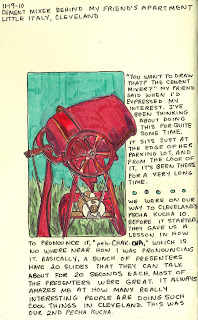 11-19-10
CEMENT MIXER BEHIND MY FRIEND'S APARTMENT
LITTLE ITALY, CLEVELAND
"YOU WANT TO DRAW
THAT? THE CEMENT
MIXER?" MY FRIEND
SAID WHEN I'D
EXPRESSED MY
INTEREST. I'VE
BEEN THINKING
ABOUT DOING
THIS FOR QUITE
SOME TIME.
IT SITS JUST AT
THE EDGE OF HER
PARKING LOT, AND
FROM THE LOOK OF
IT, IT'S BEEN THERE
FOR A VERY LONG
TIME.
WE WERE ON OUR
WAY TO CLEVELAND'S
PECHA KUCHA 10.
BEFORE IT STARTED,
GAVE US A
LESSON IN HOW
TO PRONOUNCE IT, "peh-CHAK-CHA," WHICH IS
NO WHERE NEAR HOW I WAS PRONOUNCING
IT. BASICALLY, A BUNCH OF PRESENTERS
HAVE 20 SLIDES THAT THEY CAN TALK
ABOUT FOR 20 SECONDS EACH. MOST OF
THE PRESENTERS WERE GREAT. IT ALWAYS
AMAZES ME AT HOW MANY REALLY
INTERESTING PEOPLE ARE DOING SUCH
COOL THINGS IN CLEVELAND. THIS WAS
OUR 2ND PECHA KUCHA.